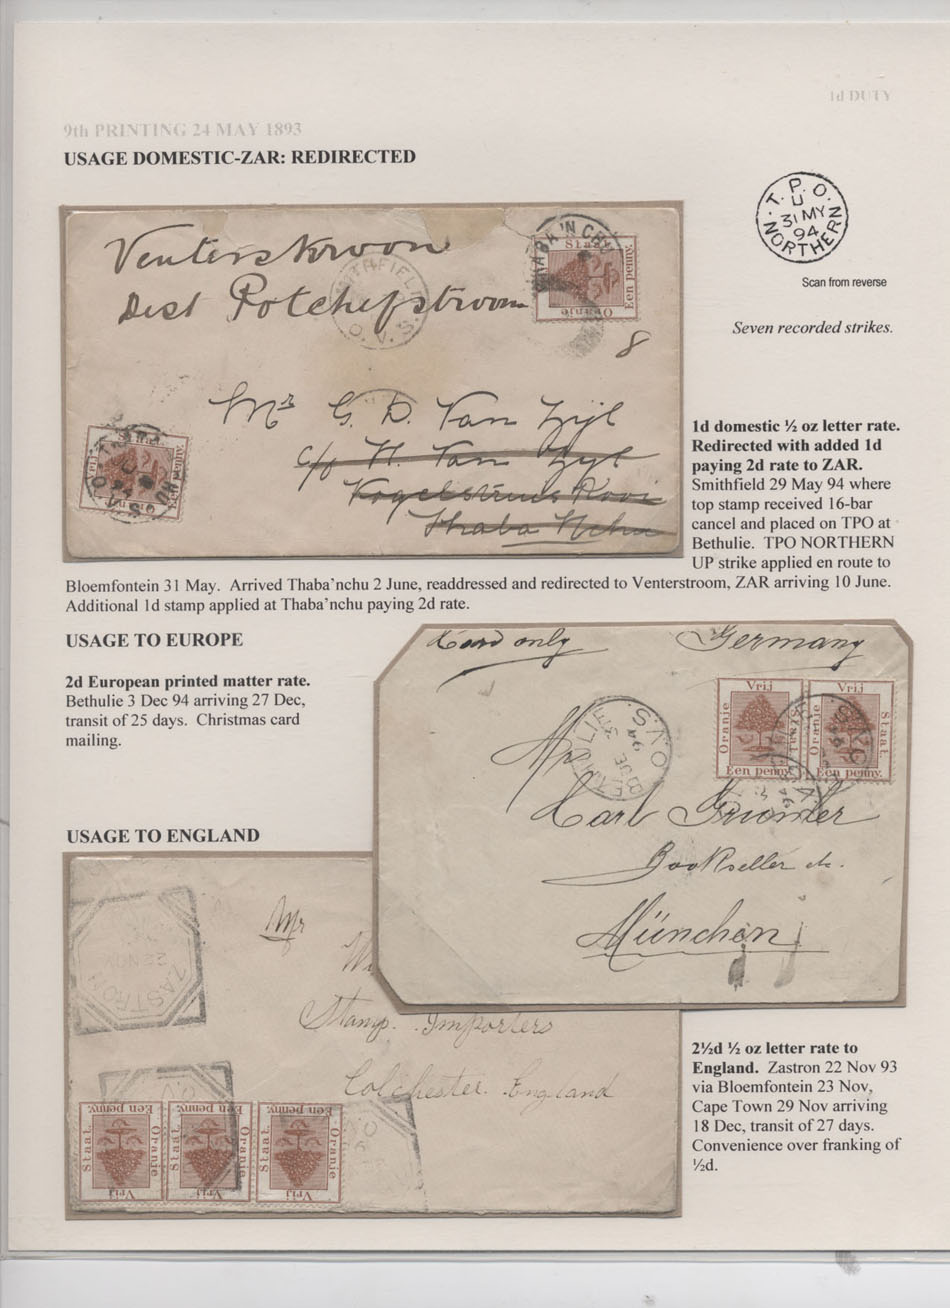 1d DUTY
9th PRINTING 24 MAY 1893
USAGE DOMESTIC-ZAR: REDIRECTED
T.P.O.
U
31 MY
94
NORTHERN
Scan from reverse
Seven recorded strikes.
Venterskroon
Dist Potchefstroom
SMITHFIELD
O.V.S.
THABA'N CHU
Staat.
Een penny.
Oranje
8
Mr G. D. Van Zyl
c/o H. Van Zyl
Vogelstruis Kooi
Thaba Nchu
Vrij
Een penny.
1d domestic ½ oz letter rate.
Redirected with added 1d
paying 2d rate to ZAR.
Smithfield 29 May 94 where
top stamp received 16-bar
cancel and placed on TPO at
Bethulie. TPO NORTHERN
UP strike applied en route to
Bloemfontein 31 May. Arrived Thaba'nchu 2 June, readdressed and redirected to Venterstroom, ZAR arriving 10 June.
Additional 1d stamp applied at Thaba'nchu paying 2d rate.
USAGE TO EUROPE
2d European printed matter rate.
Bethulie 3 Dec 94 arriving 27 Dec,
transit of 25 days. Christmas card
mailing.
Card only Germany
BETHULIE
3
DE
94
O.V.S.
Vrij Vrij
Oranje Staat. Oranje Staat.
Een penny. Een penny.
Karl
Bookseller etc.
München
USAGE TO ENGLAND
ZASTRON
22 NOV
Mr
Stamp Importers
Colchester England
Een penny. Een penny. Een penny.
Staat. Oranje Staat. Oranje Staat. Oranje
Vrij Vrij Vrij
2½d ½ oz letter rate to
England. Zastron 22 Nov 93
via Bloemfontein 23 Nov,
Cape Town 29 Nov arriving
18 Dec, transit of 27 days.
Convenience over franking of
½d.